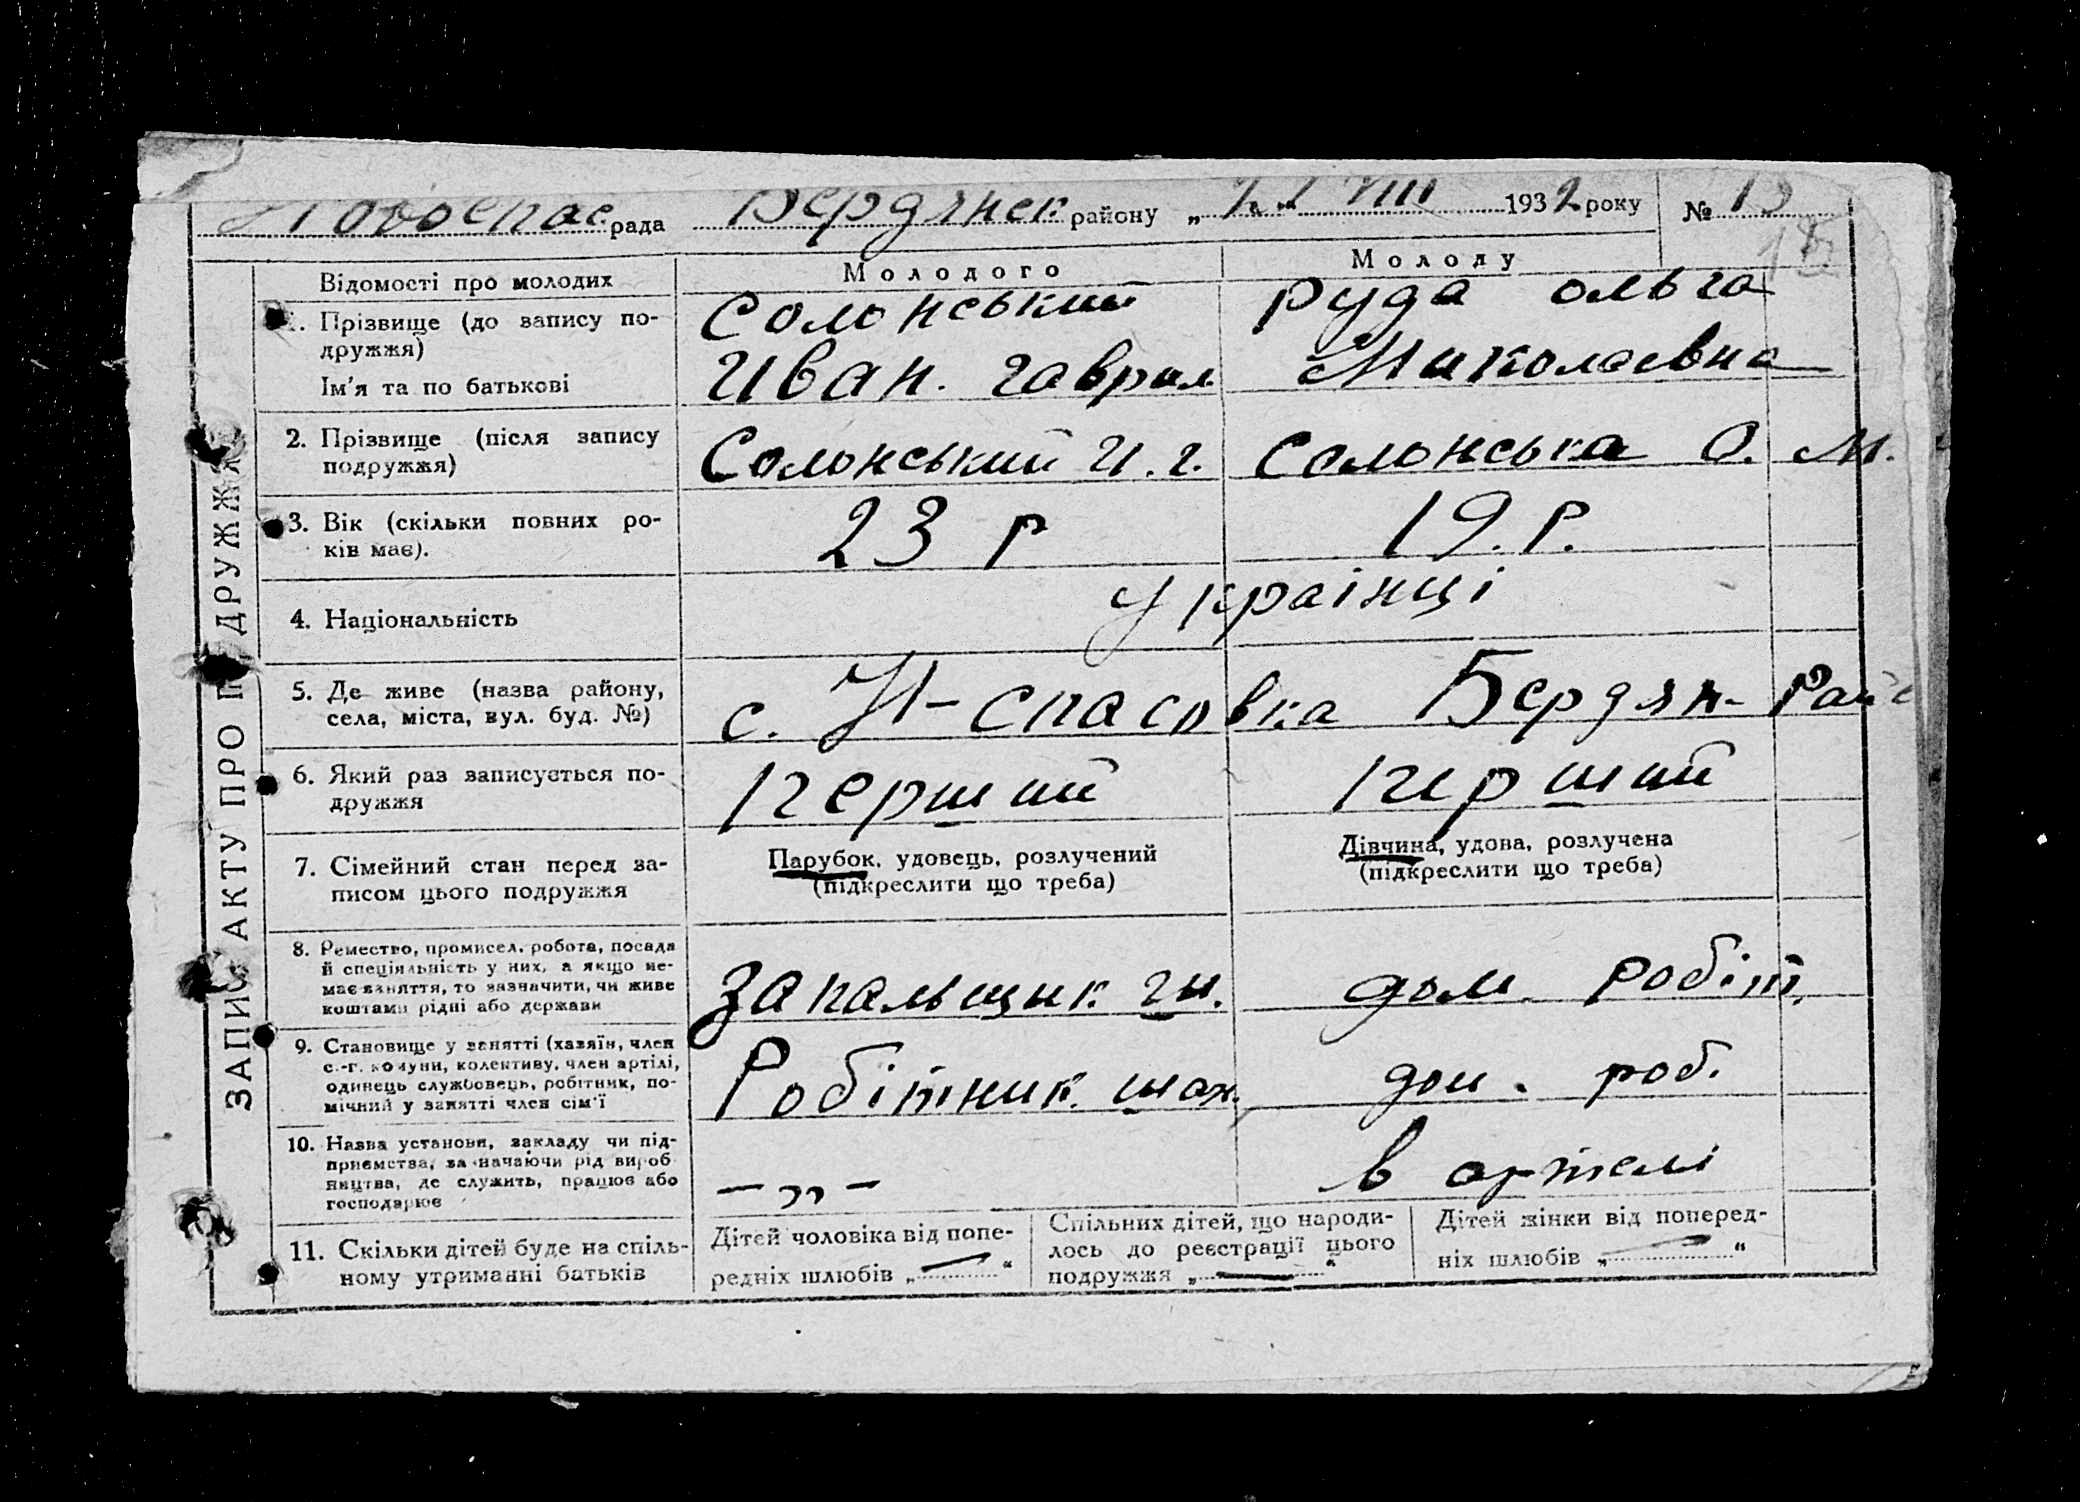 Новоспас. рада Бердянск району „ " VIII 1932 року № 13
Відомості про молодих Молодого Молоду
1. Прізвище (до запису по- Солонський Руда Ольга
дружжя)
Ім'я та по батькові Иван. Гаврил. Миколаевна
2. Прізвище (після запису Солонський И. Г. Солонська О. М.
подружжя)
3. Вік (скільки повних ро- 23 р 19. р.
ків має).
4. Національність Украінці
5. Де живе (назва району, с. Н-Спасовка Бердян- Рай
села, міста, вул. буд. №)
6. Який раз записується по- перший перший
дружжя
7. Сімейний стан перед за- Парубок, удовець, розлучений Дівчина, удова, розлучена
писом цього подружжя (підкреслити що треба) (підкреслити що треба)
8. Ремество, промисел, робота, посада
й спеціяльність у них, а якщо не-
має заняття, то зазначити, чи живе Запальщик дом. робіт.
коштами рідні або держави
9. Становище у занятті (хазяїн, член
с.-г. комуни, колективу, член артілі,
одинець службовець, робітник, по- Робітник шах. дом. роб.
мічний у занятті член сім'ї
10. Назва установи, закладу чи під-
приємства, зазначаючи рід вироб
ництва, де служить, працює або - „ - в артелі
господарює
11. Скільки дітей буде на спіль- Дітей чоловіка від попе- Спільних дітей, що народи- Дітей жінки від поперед-
ному утриманні батьків редніх шлюбів „—" лось до реєстрації цього ніх шлюбів „—"
подружжя „—"
ЗАПИС АКТУ ПРО ПОДРУЖЖЯ